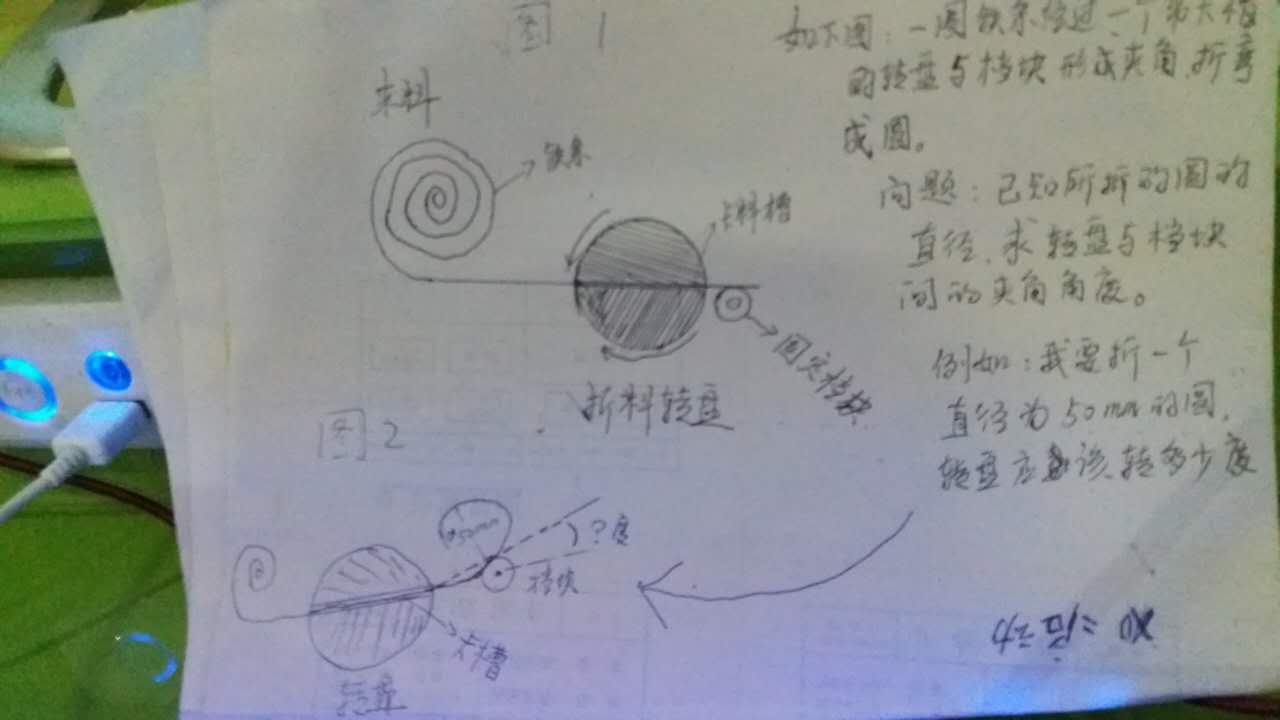 图 1
如下图：一圈铁条经过一个
的转盘与档块形成夹角，折弯
成圆。
来料
铁条
卡料槽
固定档块
折料转盘
问题：已知所折的圆的
直径，求转盘与档块
间的夹角角度。
例如：我要折一个
直径为50mm的圆，
转盘应该转多少度
图 2
φ50mm
？度
档块
卡槽
转盘
X0=启动